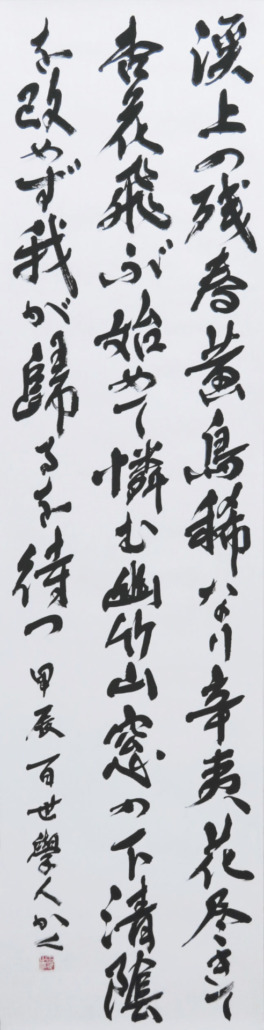 渓上の残春黄鳥稀なり辛夷花尽きて
杏花飛ぶ始めて憐む幽竹山窓の下清陰
を改めず我が歸るを待つ
甲辰 百世學人かく